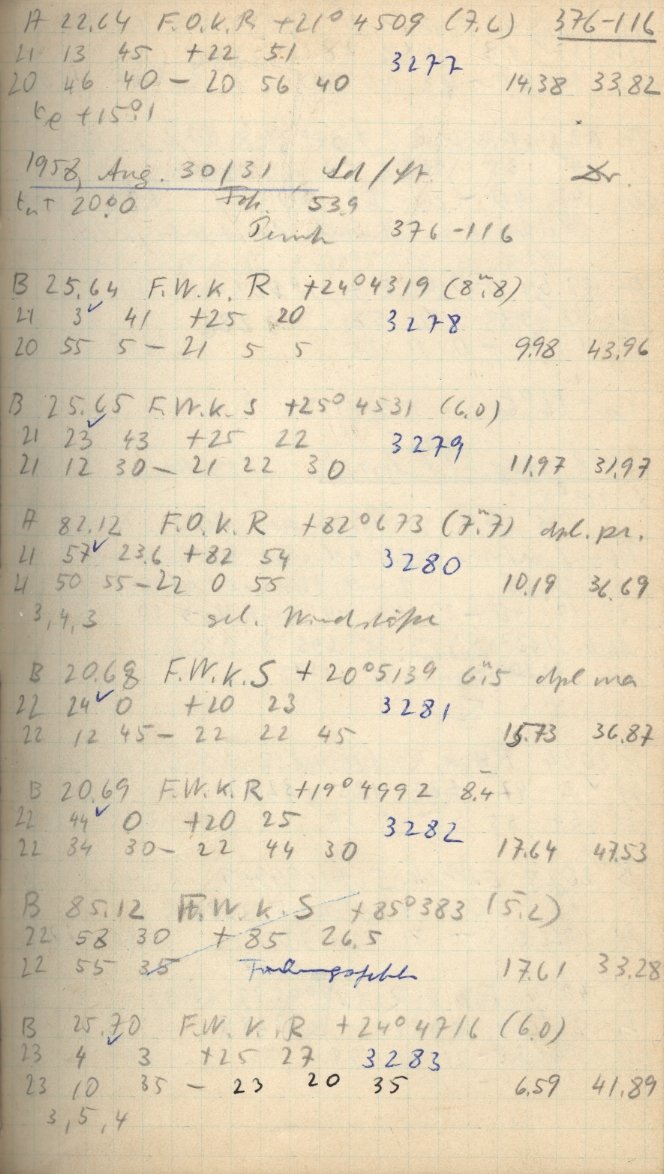 A 22.64 F.O.K.R +21° 4509 (7.6) 376-116
21 13 45 +22 51 3277
20 46 40 - 20 56 40 14.38 33.82
te +15°.1
1958, Aug. 30/31 Sd/St. Dr.
tn + 20°.0 Fok. 539
376-116
B 25.64 F.W.K. R +24° 4319 (8m.8)
21 3 41 +25 20 3278
20 55 5 - 21 5 5 9.98 43.96
B 25.65 F.W.K. S +25° 4531 (6.0)
21 23 43 +25 22 3279
21 12 30 - 21 22 30 11.97 31.97
A 82.12 F.O.K.R +82° 673 (7m.7) dpl. pr.
21 57 23.6 +82 54 3280
21 50 55 - 22 0 55 10.19 36.69
3, 4, 3 Windstöße
B 20.68 F.W.K.S +20° 5139 6m.5 dpl ma
22 24 0 +20 23 3281
22 12 45 - 22 22 45 15.73 36.87
B 20.69 F.W.K.R +19° 4992 8.4
22 44 0 +20 25 3282
22 34 30 - 22 44 30 17.64 47.53
B 85.12 F.W.K.S +85° 383 (5.2)
22 58 30 +85 26.5
22 55 35 17.61 33.28
B 25.70 F.W.K.R +24° 4716 (6.0)
23 4 3 +25 27 3283
23 10 35 - 23 20 35 6.59 41.89
3, 5, 4